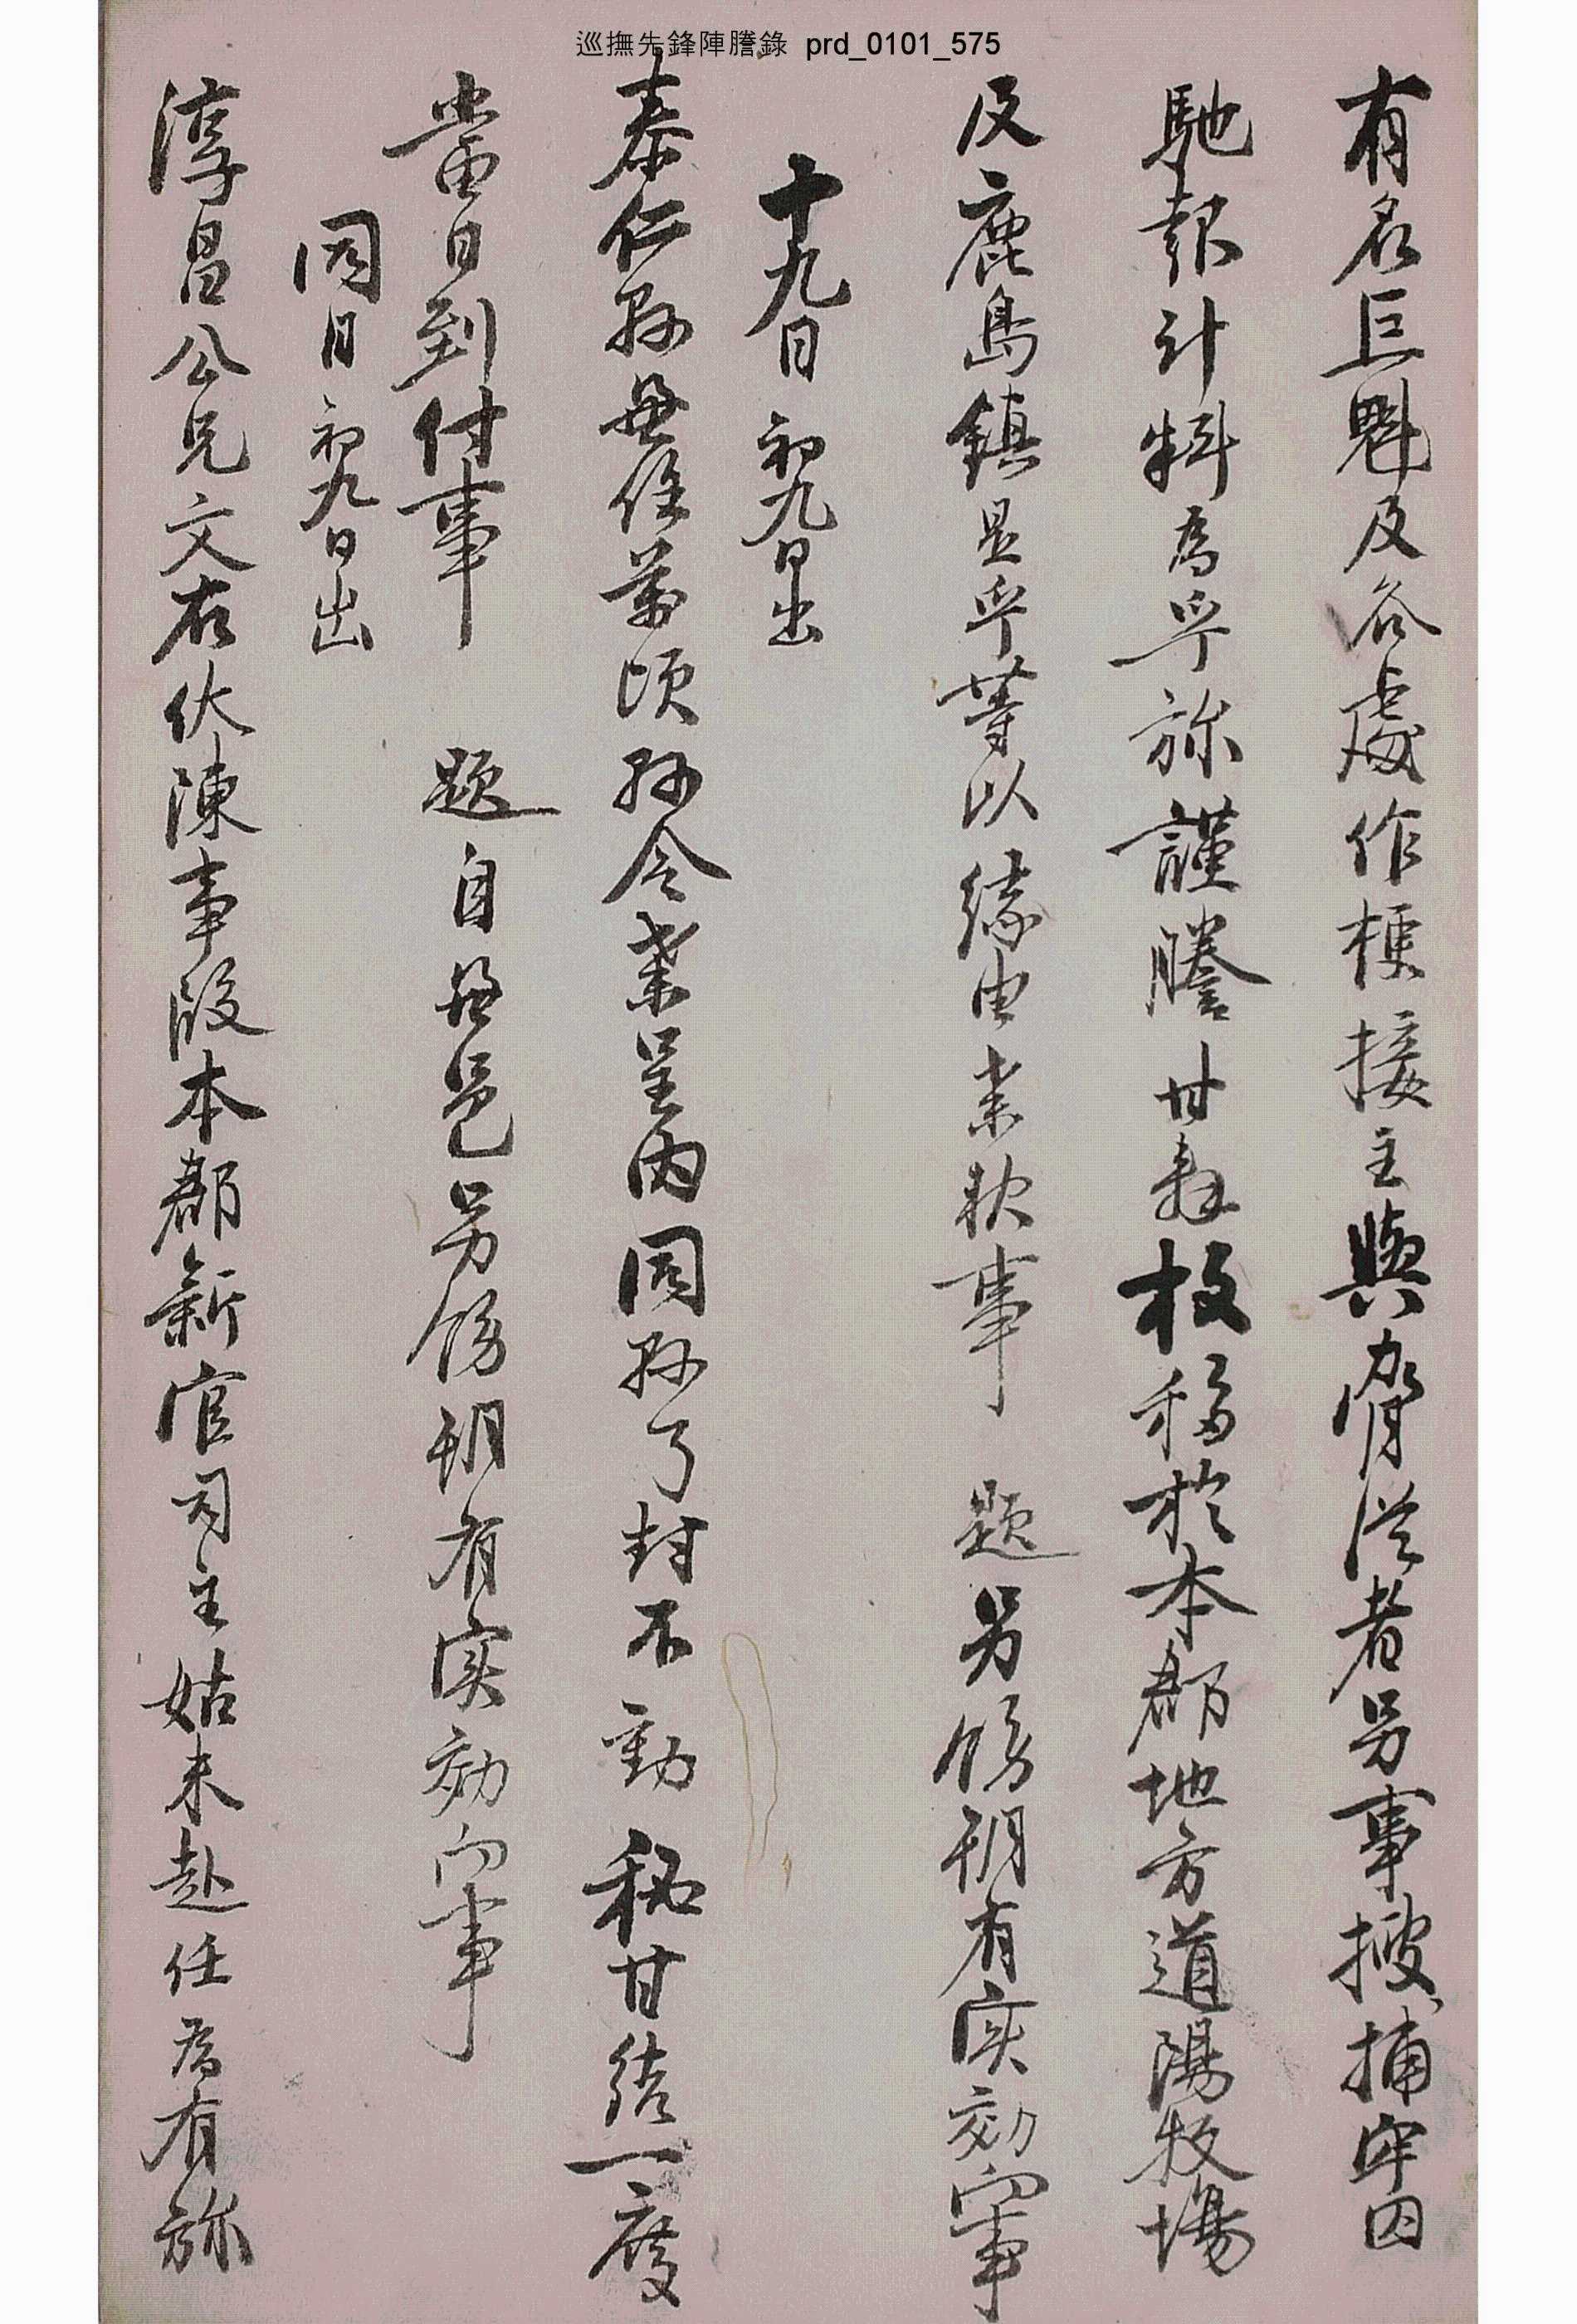 巡撫先鋒陣謄錄 prd_0101_575
有名巨魁及各處作梗接主與脅從者另事搜捕牢囚
馳報計料爲乎旀謹謄甘辭枚移於本郡地方道陽牧場
及鹿島鎭是乎等以緣由牒報事 題另飭期有實効向事
十九日 初九日出
泰仁縣兼任萬頃縣令牒呈內同縣了封不動秘甘結一度
當日到付事 題自兼邑另飭期有實効向事
同日 初九日出
淳昌公兄文右伏陳事段本郡新官司主姑未赴任爲有旀